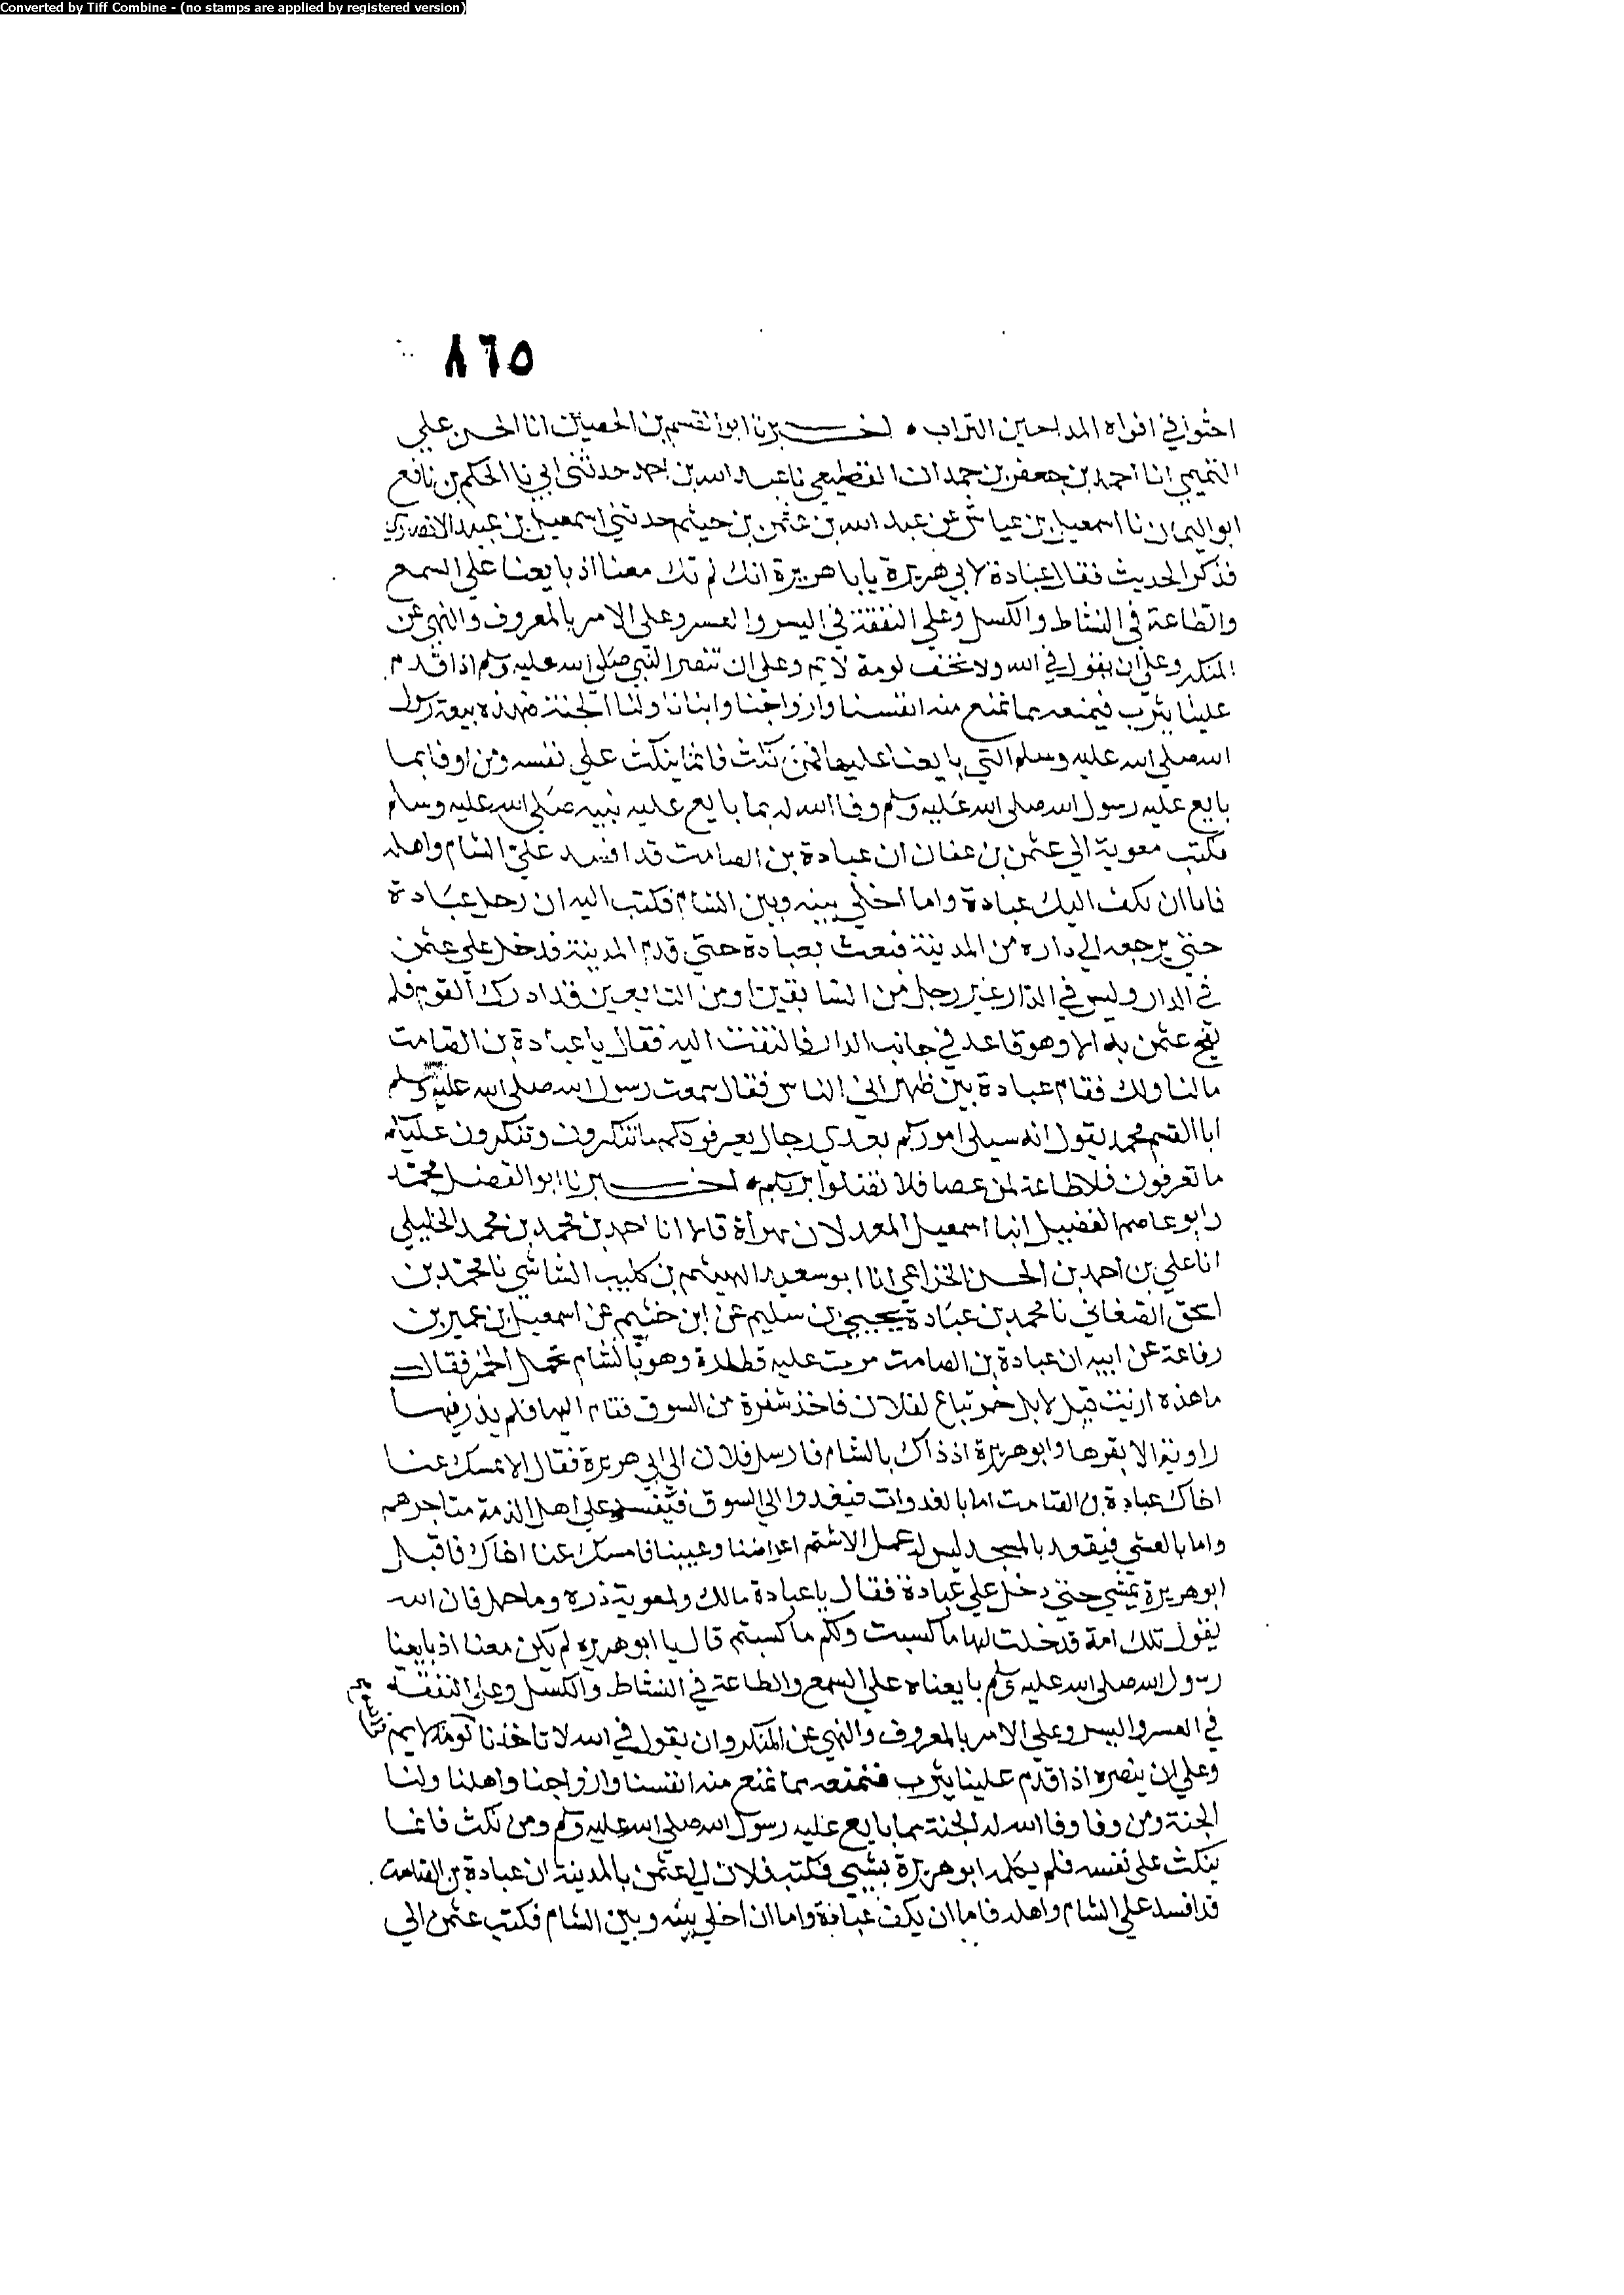 Converted by Tiff Combine - (no stamps are applied by registered version)
٨٦٥
احثوا في افواه المداحين التراب • اخبرنا ابو القسم بن الحصين انا الحسن علي
التميمي انا احمد بن جعفر بن حمدان القطيعي نا عبد الله بن احمد حدثني ابي نا الحكم بن نافع
ابو اليمان نا اسمعيل بن عياش عن عبد الله بن عثمن بن خيثم حدثني اسمعيل بن عبيد الانصاري
فذكر الحديث فقال عبادة لابي هريرة يابا هريرة انك لم تك معنا اذ بايعنا علي السمع
والطاعة في النشاط والكسل وعلي النفقة في اليسر والعسر وعلي الامر بالمعروف والنهي عن
المنكر وعلي ان نقول في الله ولا نخف لومة لايم وعلي ان ننصر النبي صلي الله عليه وسلم اذا قدم
علينا يثرب فيمنعه مما نمنع منه انفسنا وازواجنا وابنانا ولنا الجنة فهذه بيعة رسول
الله صلي الله عليه وسلم التي بايعنا عليها فمن نكث فانما ينكث علي نفسه ومن اوفا بما
بايع عليه رسول الله صلي الله عليه وسلم وفا الله له بما بايع عليه نبيه صلي الله عليه وسلم
فكتب معوية الي عثمن بن عفان ان عبادة بن الصامت قد افسد علي الشام واهله
فاما ان تكف اليك عبادة واما اخلي بينه وبين الشام فكتب اليه ان رحل عبادة
حتي يرجعه الي داره من المدينة فبعث بعبادة حتي قدم المدينة فدخل علي عثمن
في الدار وليس في الدار غير رجل من السابقين او من التابعين قد ادرك القوم فلم
يفج عثمن به الا وهو قاعد في جانب الدار فالتفت اليه فقال يا عبادة بن الصامت
مالنا ولك فقام عبادة بين ظهراني الناس فقال سمعت رسول الله صلي الله عليه وسلم
ابا القسم محمد يقول انه سيلي اموركم بعدي رجال يعرفونكم ما تنكرون وتنكرون عليكم
ما تعرفون فلا طاعة لمن عصا فلا تفتلوا بربكم • اخبرنا ابو الفضل محمد
وابو عاصم الفضيل ابنا اسمعيل المعدلان بهراة قالا انا احمد بن محمد بن محمد الخليلي
انا علي بن احمد بن الحسن الخزاعي انا ابو سعيد الهيثم بن كليب الشاشي نا محمد بن
اسحق الصغاني نا محمد بن عبادة يحيي بن سليم عن ابن خثيم عن اسمعيل بن عمير بن
رفاعة عن ابيه ان عبادة بن الصامت مرت عليه قطارة وهو بالشام تحمل الخمر فقال
ما هذه ازيت قيل لا بل خمر تباع لفلان فاخذ شفرة من السوق فقام اليها فلم يذر فيها
راوية الا بقرها وابو هريرة اذ ذاك بالشام فارسل فلان الي ابي هريرة فقال الا تمسك عنا
اخاك عبادة بن الصامت اما بالغدوات فيغدوا الي السوق فيفسد علي اهل الذمة متاجرهم
واما بالعشي فيقعد بالمسجد ليس له عمل الا شتم اعراضنا وعيبنا فامسك عنا اخاك فاقبل
ابو هريرة يمشي حتي دخل علي عبادة فقال يا عبادة مالك ولمعوية ذره وما حمل فان الله
يقول تلك امة قد خلت لها ما كسبت ولكم ما كسبتم قال يا ابو هريره لم تكن معنا اذ بايعنا
رسول الله صلي الله عليه وسلم بايعناه علي السمع والطاعة في النشاط والكسل وعلي النفقة
في العسر واليسر وعلي الامر بالمعروف والنهي عن المنكر وان نقول في الله لا تاخذنا لومة لايم
وعلي ان ننصره اذا قدم علينا يثرب فنمنعه مما نمنع منه انفسنا وازواجنا واهلنا ولنا
الجنة ومن وفا وفا الله له الجنة بما بايع عليه رسول الله صلي الله عليه وسلم ومن نكث فانما
ينكث علي نفسه فلم يكلمه ابو هريرة بشيي فكتب فلان الي عثمن بالمدينة ان عبادة بن الصامت
قد افسد علي الشام واهله فاما ان يكف عبادة واما ان اخلي بينه وبين الشام فكتب عثمن الي